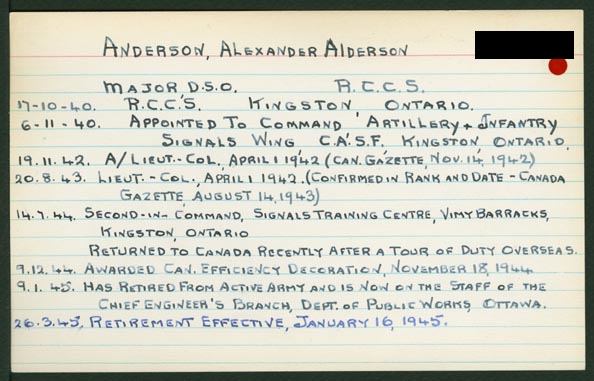 ANDERSON, ALEXANDER ALDERSON
MAJOR, D.S.O. R.C.C.S.
17-10-40. R.C.C.S. KINGSTON ONTARIO.
6-11-40. APPOINTED TO COMMAND ARTILLERY & INFANTRY
SIGNALS WING, C.A.S.F., KINGSTON, ONTARIO.
19.11.42. A/LIEUT.-COL., APRIL 1, 1942 (CAN. GAZETTE, NOV. 14, 1942)
20.8.43. LIEUT.-COL., APRIL 1 1942. (CONFIRMED IN RANK AND DATE - CANADA
GAZETTE, AUGUST 14, 1943)
14.7.44. SECOND-IN-COMMAND, SIGNALS TRAINING CENTRE, VIMY BARRACKS,
KINGSTON, ONTARIO
RETURNED TO CANADA RECENTLY AFTER A TOUR OF DUTY OVERSEAS.
9.12.44. AWARDED CAN. EFFICIENCY DECORATION, NOVEMBER 18, 1944
9.1.45. HAS RETIRED FROM ACTIVE ARMY AND IS NOW ON THE STAFF OF THE
CHIEF ENGINEER'S BRANCH, DEPT. OF PUBLIC WORKS, OTTAWA.
26.3.45, RETIREMENT EFFECTIVE, JANUARY 16, 1945.